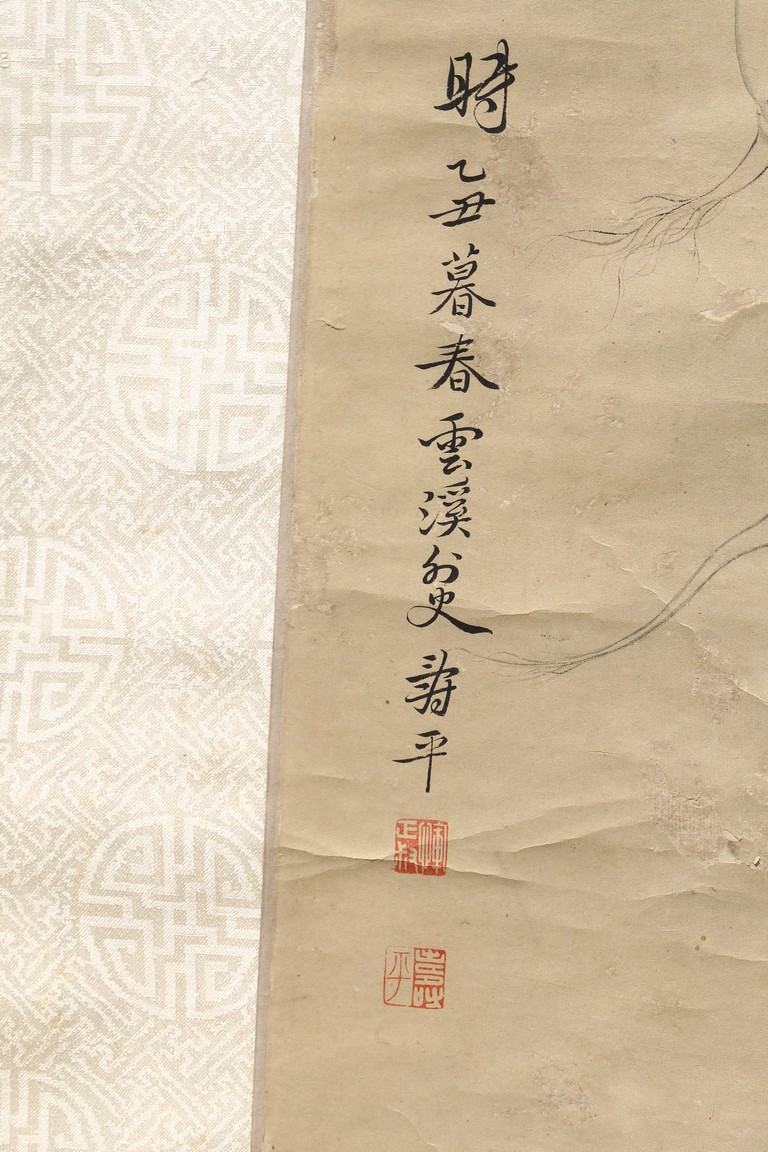 時乙丑暮春雲溪外史壽平
惲正叔
壽平